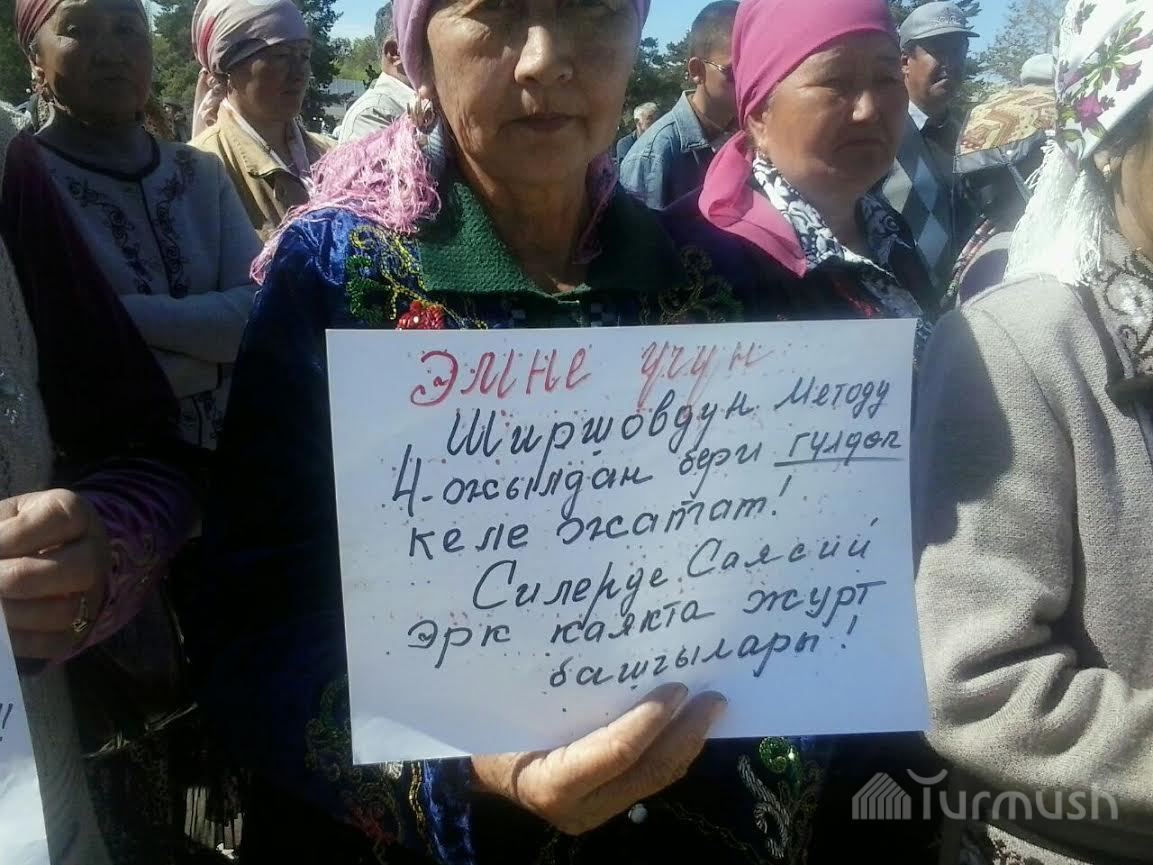 Эмне үчүн
Ширшовдун методу
4-жылдан бери гүлдөп
келе жатат!
Силерде Саясий
эрк каякта журт
башчылары!
!
Turmush